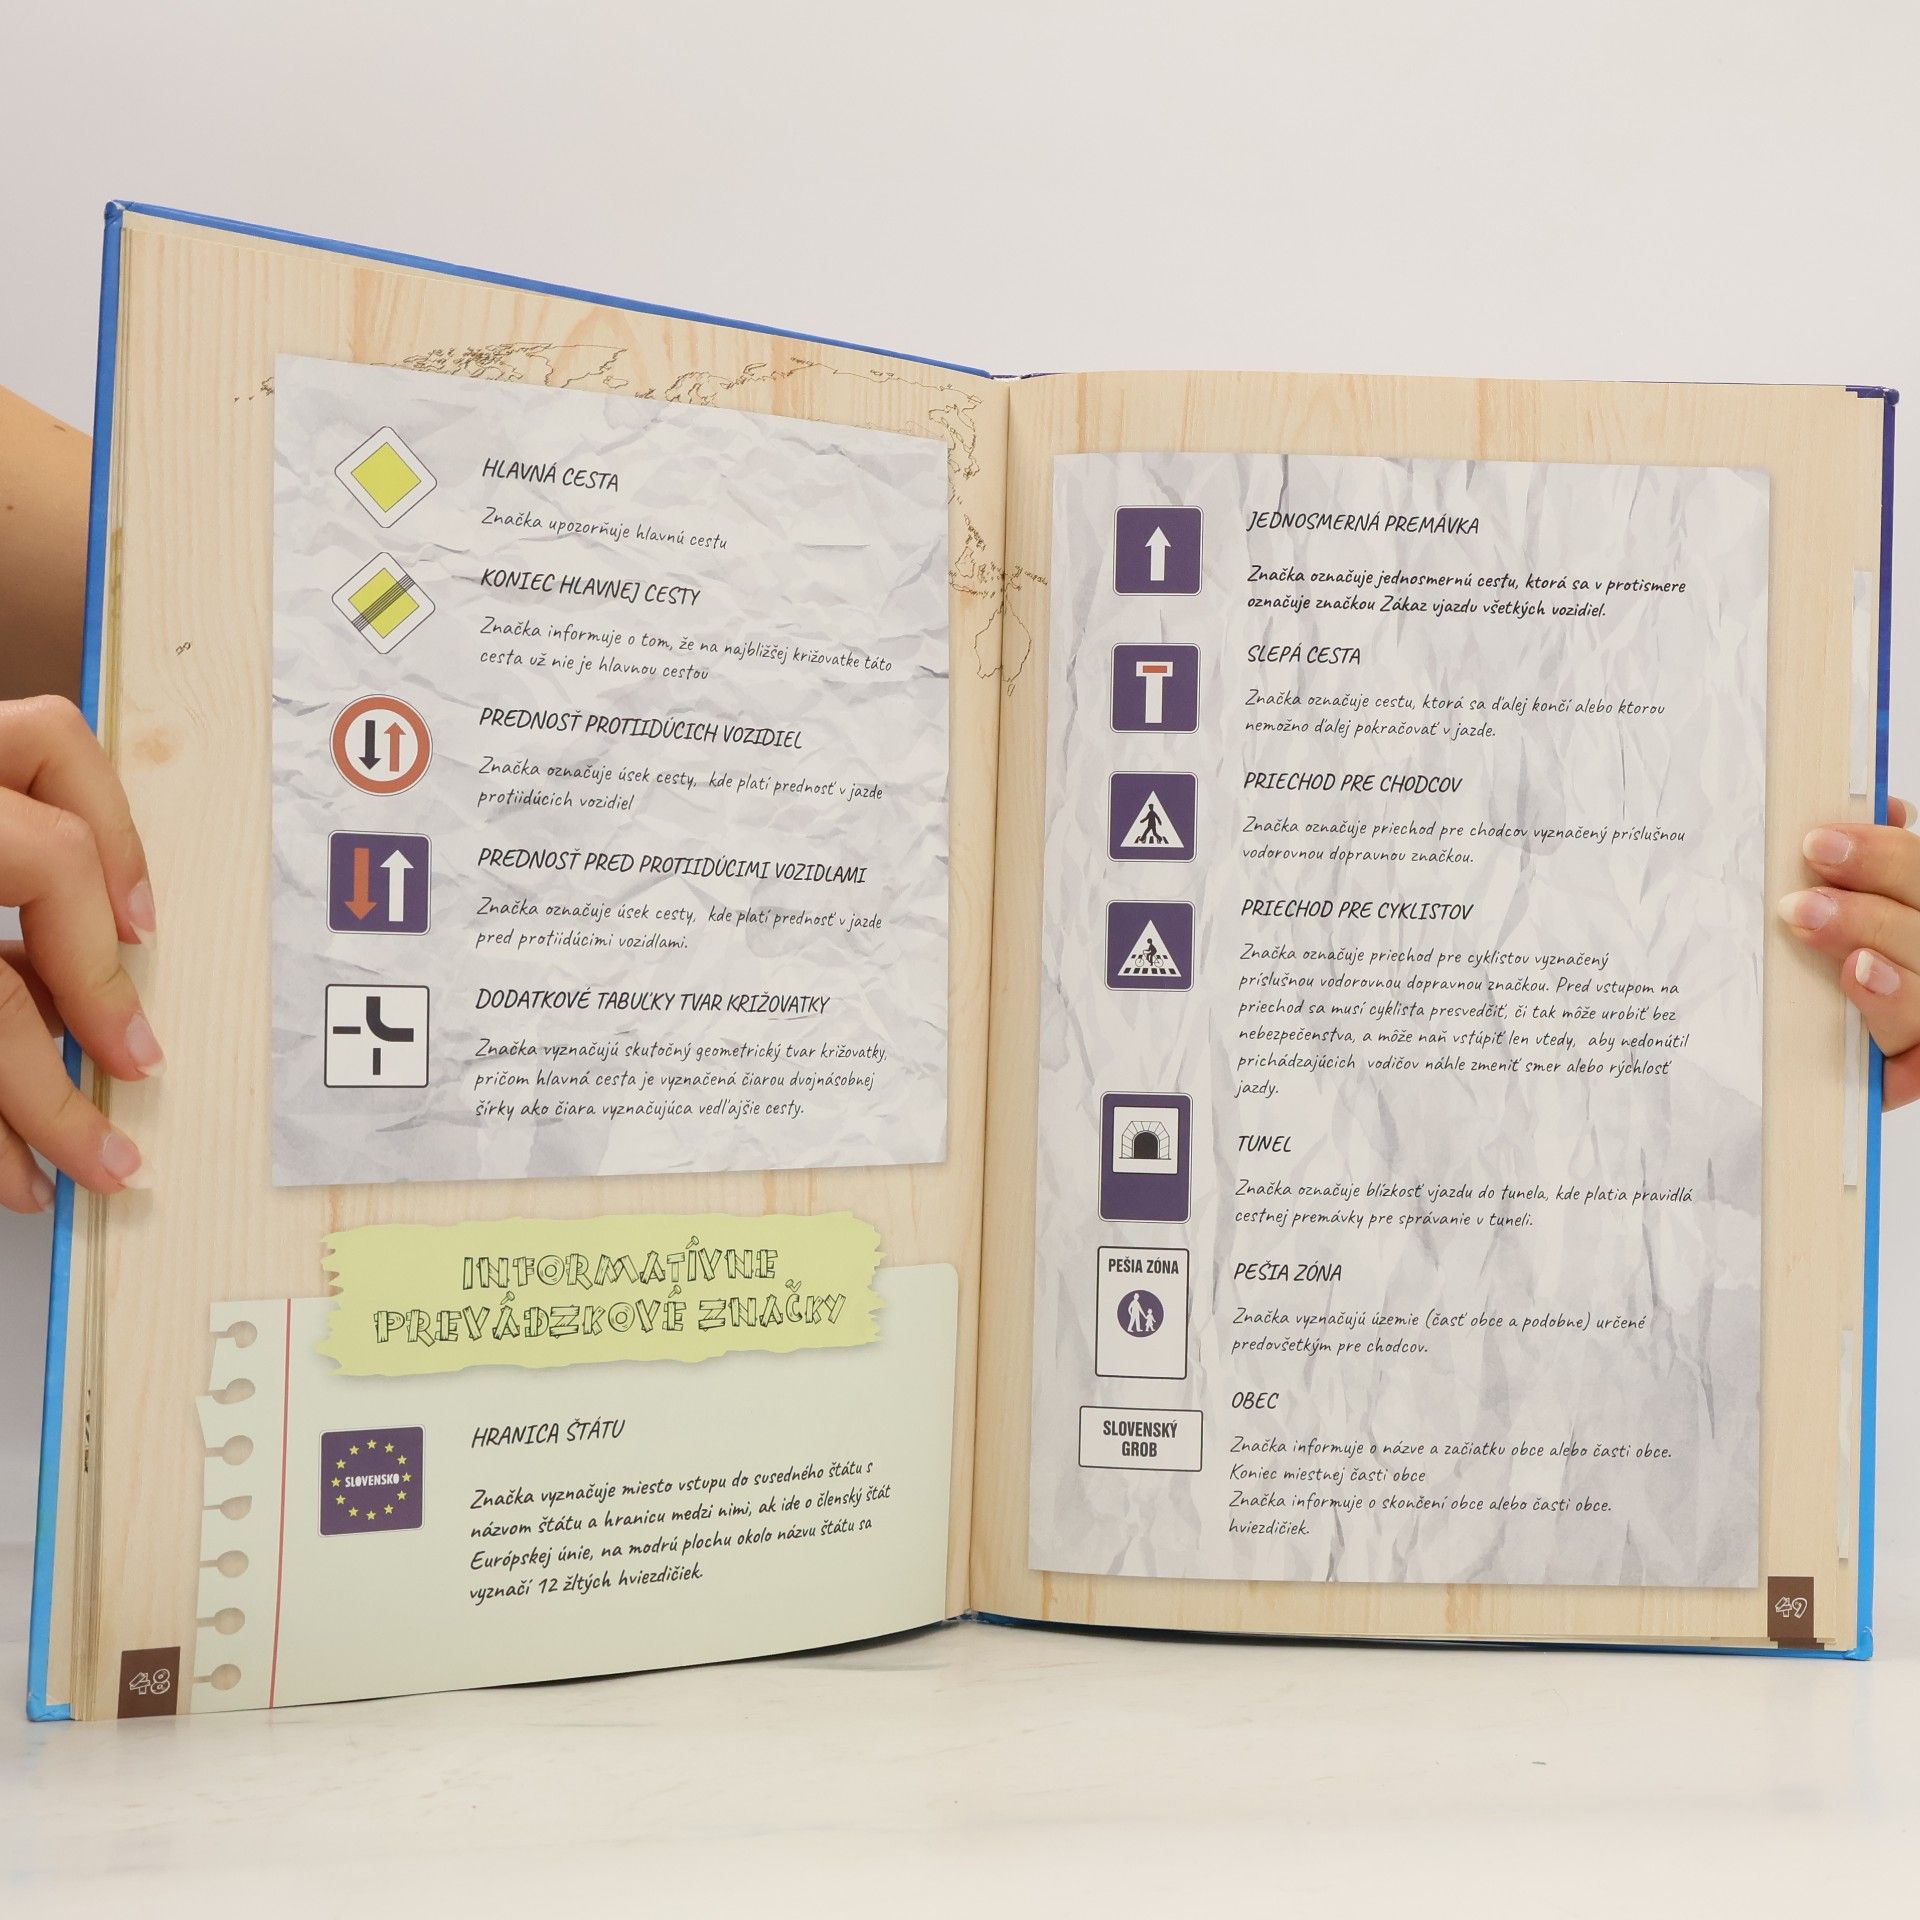 HLAVNÁ CESTA
Značka upozorňuje hlavnú cestu
KONIEC HLAVNEJ CESTY
Značka informuje o tom, že na najbližšej križovatke táto
cesta už nie je hlavnou cestou
PREDNOSŤ PROTIIDÚCICH VOZIDIEL
Značka označuje úsek cesty, kde platí prednosť v jazde
protiidúcich vozidiel
PREDNOSŤ PRED PROTIIDÚCIMI VOZIDLAMI
Značka označuje úsek cesty, kde platí prednosť v jazde
pred protiidúcimi vozidlami.
DODATKOVÉ TABUĽKY TVAR KRIŽOVATKY
Značka vyznačujú skutočný geometrický tvar križovatky,
pričom hlavná cesta je vyznačená čiarou dvojnásobnej
šírky ako čiara vyznačujúca vedľajšie cesty.
INFORMATÍVNE
PREVÁDZKOVÉ ZNAČKY
SLOVENSKO
HRANICA ŠTÁTU
Značka vyznačuje miesto vstupu do susedného štátu s
názvom štátu a hranicu medzi nimi, ak ide o členský štát
Európskej únie, na modrú plochu okolo názvu štátu sa
vyznačí 12 žltých hviezdičiek.
48
JEDNOSMERNÁ PREMÁVKA
Značka označuje jednosmernú cestu, ktorá sa v protismere
označuje značkou Zákaz vjazdu všetkých vozidiel.
SLEPÁ CESTA
Značka označuje cestu, ktorá sa ďalej končí alebo ktorou
nemožno ďalej pokračovať v jazde.
PRIECHOD PRE CHODCOV
Značka označuje priechod pre chodcov vyznačený príslušnou
vodorovnou dopravnou značkou.
PRIECHOD PRE CYKLISTOV
Značka označuje priechod pre cyklistov vyznačený
príslušnou vodorovnou dopravnou značkou. Pred vstupom na
priechod sa musí cyklista presvedčiť, či tak môže urobiť bez
nebezpečenstva, a môže naň vstúpiť len vtedy, aby nedonútil
prichádzajúcich vodičov náhle zmeniť smer alebo rýchlosť
jazdy.
TUNEL
Značka označuje blízkosť vjazdu do tunela, kde platia pravidlá
cestnej premávky pre správanie v tuneli.
PEŠIA ZÓNA
PEŠIA ZÓNA
Značka vyznačujú územie (časť obce a podobne) určené
predovšetkým pre chodcov.
SLOVENSKÝ
GROB
OBEC
Značka informuje o názve a začiatku obce alebo časti obce.
Koniec miestnej časti obce
Značka informuje o skončení obce alebo časti obce.
hviezdičiek.
49